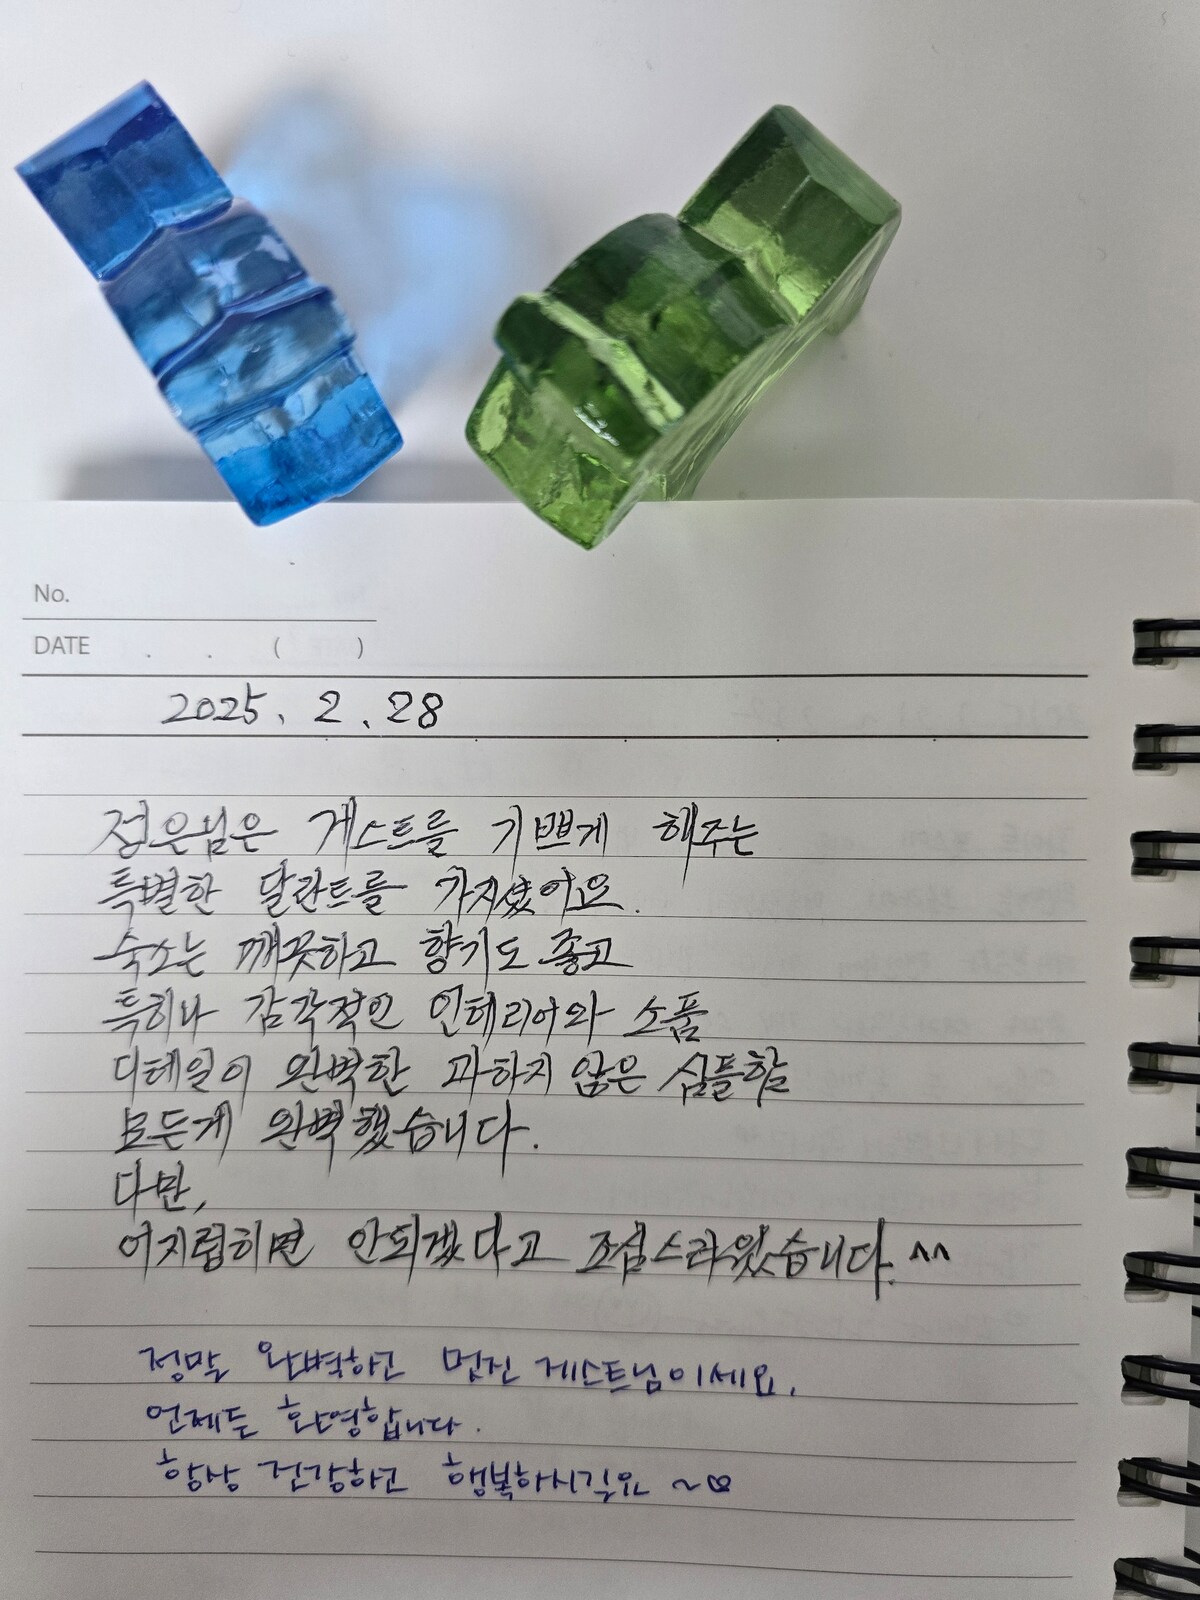 No.
DATE . . ( )
2025. 2. 28
정은님은 게스트를 기쁘게 해주는
특별한 달란트를 가지셨어요.
숙소는 깨끗하고 향기도 좋고
특히나 감각적인 인테리어와 소품
디테일이 완벽한 과하지 않은 심플함
모든게 완벽했습니다.
다만,
어지럽히면 안되겠다고 조심스러웠습니다. ^^
정말 완벽하고 멋진 게스트님이세요.
언제든 환영합니다.
항상 건강하고 행복하시길요 ~